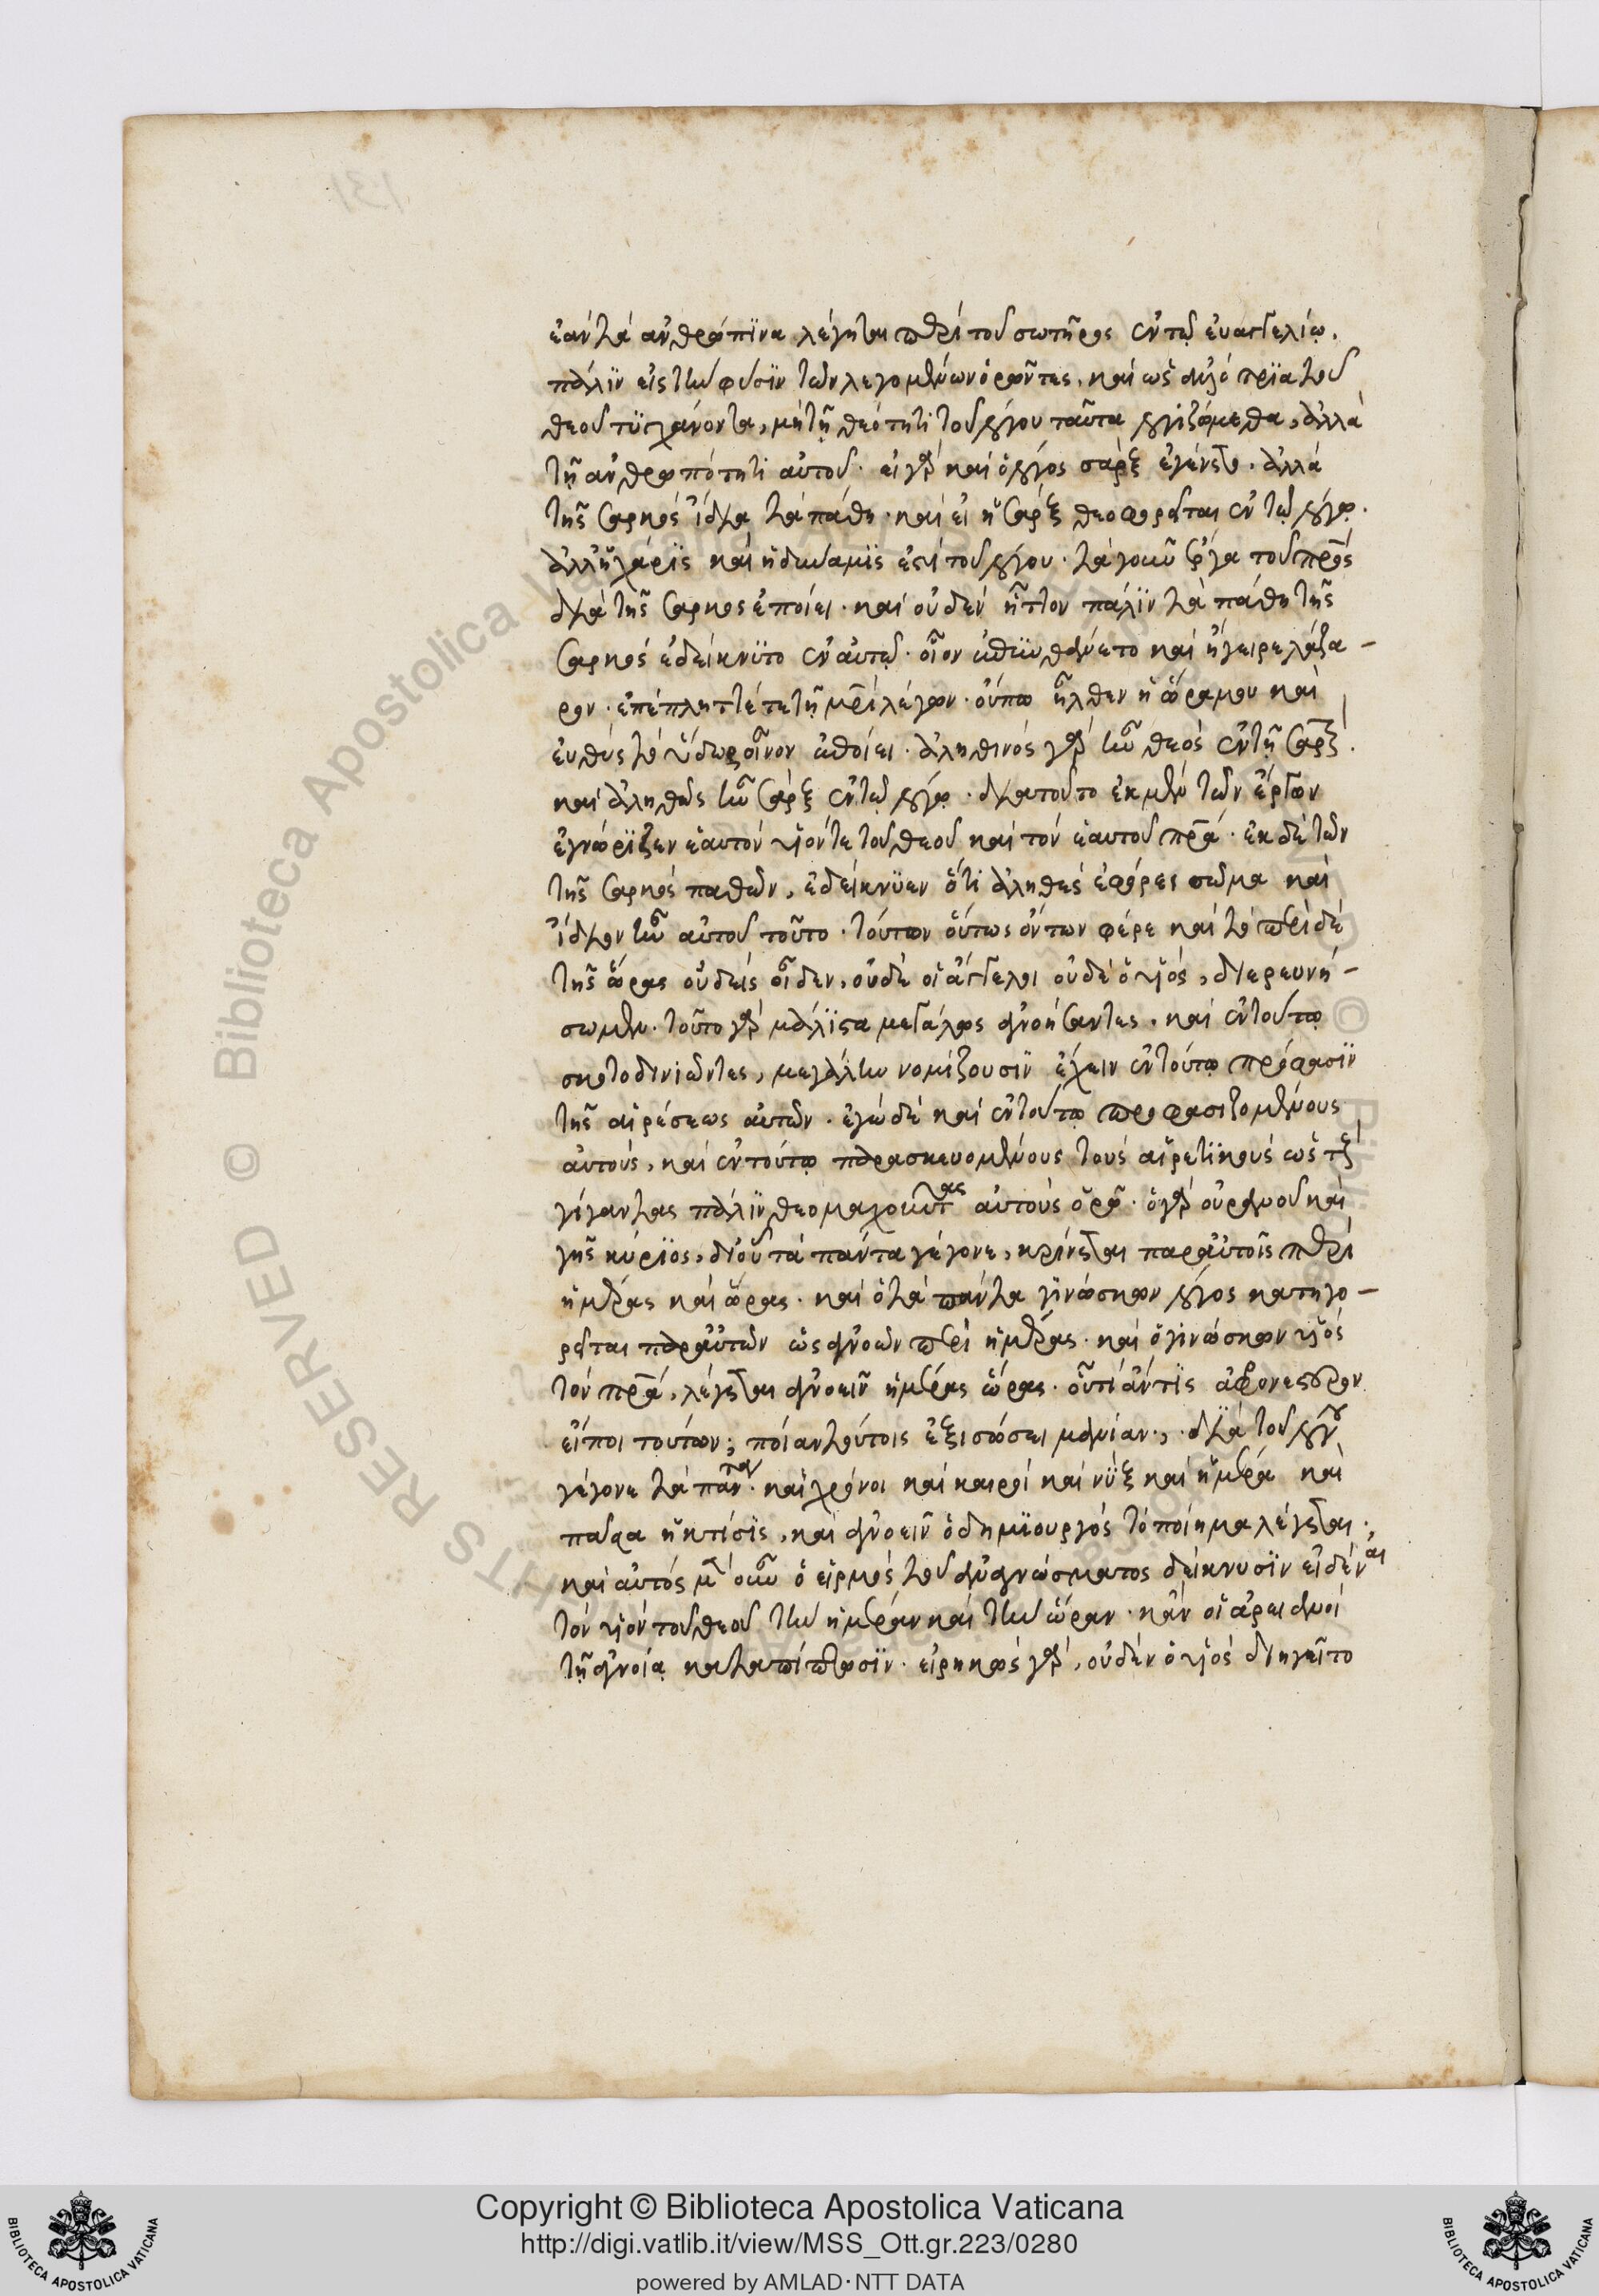 ἐὰν τὰ ἀνθρώπϊνα λέγηται περὶ τοῦ σωτῆρος ἐν τῷ εὐαγγελίῳ.
πάλϊν εἰς τὴν φύσϊν τῶν λεγομένων ὁρῶντες, καὶ ὡς ἀλλότρϊα τοῦ
θεοῦ τϋγχάνοντα, μὴ τῇ θεότητι τοῦ λόγου ταῦτα λογιζόμεθα, ἀλλὰ
τῇ ἀνθρωπότητι αὐτοῦ· εἰ γὰρ καὶ ὁ λόγος σὰρξ ἐγένετο· ἀλλὰ
τῆς σαρκὸς ἴδια τὰ πάθη· καὶ εἰ ἡ σὰρξ θεοφορεῖται ἐν τῷ λόγῳ.
ἀλλ' ἡ χάρϊς καὶ ἡ δύναμϊς ἐστὶ τοῦ λόγου· τὰ γοῦν ἔργα τοῦ πρ̅ς
διὰ τῆς σαρκὸς ἐποίει· καὶ οὐδὲν ἧττον πάλϊν τὰ πάθη τῆς
σαρκὸς ἐδείκνϋτο ἐν αὐτῷ· οἷον ἐπϋνθάνετο καὶ ἤγειρε λάζα-
ρον· ἐπέπληττέ τε τῇ μρ̅ὶ λέγων· οὔπω ἦλθεν ἡ ὥρα μου καὶ
εὐθὺς τὸ ὕδωρ οἶνον ἐποίει· ἀληθινὸς γὰρ ἦν θεὸς ἐν τῇ σαρκὶ.
καὶ ἀληθὼς ἦν σὰρξ ἐν τῷ λόγῳ· διατοῦτο ἐκ μὲν τῶν ἔργων
ἐγνώρϊζεν ἑαυτὸν υἱόν τε τοῦ θεοῦ καὶ τὸν ἑαυτοῦ πρ̅α· ἐκ δὲ τῶν
τῆς σαρκὸς παθῶν, ἐδείκνϋεν ὅτι ἀληθὲς ἐφόρει σῶμα καὶ
ἴδιον ἦν αὐτοῦ τοῦτο· τούτων οὕτως ὄντων φέρε καὶ τὸ περὶ δὲ
τῆς ὥρας οὐδεὶς οἶδεν, οὐδὲ οἱ ἄγγελοι οὐδὲ ὁ υἱός, διερευνή-
σωμεν· τοῦτο γὰρ μάλϊστα μεγάλως ἀγνοήσαντες, καὶ ἐν τούτῳ
σκοτοδινιῶντες, μεγάλην νομίζουσϊν ἔχειν ἐν τούτῳ πρόφασϊν
τῆς αἱρέσεως αὐτῶν· ἐγὼ δὲ καὶ ἐν τούτῳ προφασιζομένους
αὐτούς, καὶ ἐν τούτῳ παρασκευομένους τοὺς αἱρετϊκοὺς ὡς τοὺς
γίγαντας πάλϊν θεομαχοῦντας αὐτοὺς ὁρῶ· ὁ γὰρ οὐρανοῦ καὶ
γῆς κύρϊος, δι' οὗ τὰ πάντα γέγονε, κρίνεται παρ' αὐτοῖς περὶ
ἡμέρας καὶ ὥρας· καὶ ὁ τὰ πάντα γϊνώσκων λόγος κατηγο-
ρεῖται παρ' αὐτῶν ὡς ἀγνοῶν περὶ ἡμέρας· καὶ ὁ γινώσκων υἱὸς
τὸν πρ̅α, λέγεται ἀγνοεῖν ἡμέρας ὥρας· οὗ τί ἄν τϊς ἀφρονέστερον
εἴποι τούτων; ποίαν τούτοις ἐξισώσει μανίαν; διὰ τοῦ λόγου
γέγονε τὰ πάντα· καὶ χρόνοι καὶ καιροὶ καὶ νὺξ καὶ ἡμέρα καὶ
πᾶσα ἡ κτίσϊς, καὶ ἀγνοεῖν ὁ δημϊουργὸς τὸ ποίημα λέγεται·
καὶ αὐτὸς μὲν οὖν ὁ εἱρμὸς τοῦ ἀναγνώσματος δείκνυσϊν εἰδέναι
τὸν υἱὸν τοῦ θεοῦ τὴν ἡμέραν καὶ τὴν ὥραν· κἂν οἱ ἀρειανοὶ
τῇ ἀγνοίᾳ καταπίπτωσϊν· εἰρηκὼς γὰρ, οὐδὲν ὁ υἱὸς διηγεῖτο
Copyright © Biblioteca Apostolica Vaticana
http://digi.vatlib.it/view/MSS_Ott.gr.223/0280
powered by AMLAD·NTT DATA